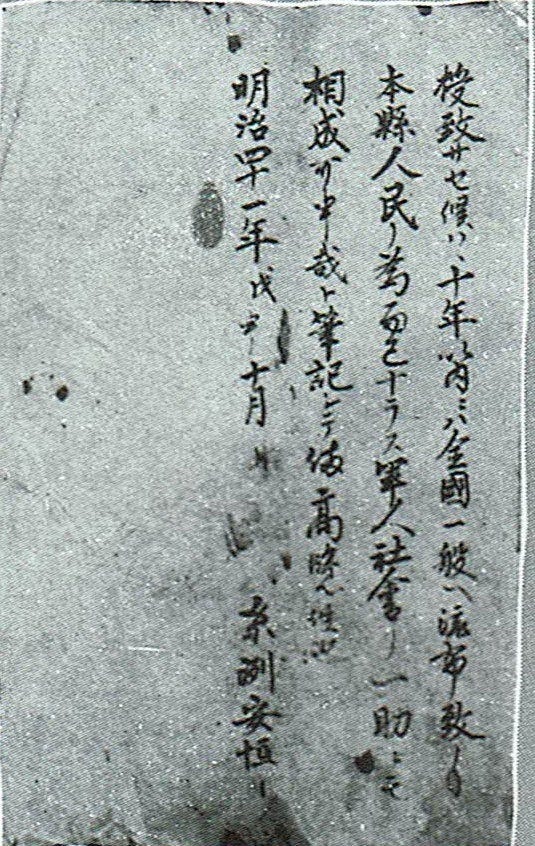 授致サセ候ハヽ十年以内ニハ全國一般ヘ流布致り可
本縣人民ノ為而已ナラス軍人社會ノ一助ニモ
相成可申哉ト筆記シテ備高 候也
明治四十一年戊申十月 糸洲安恒